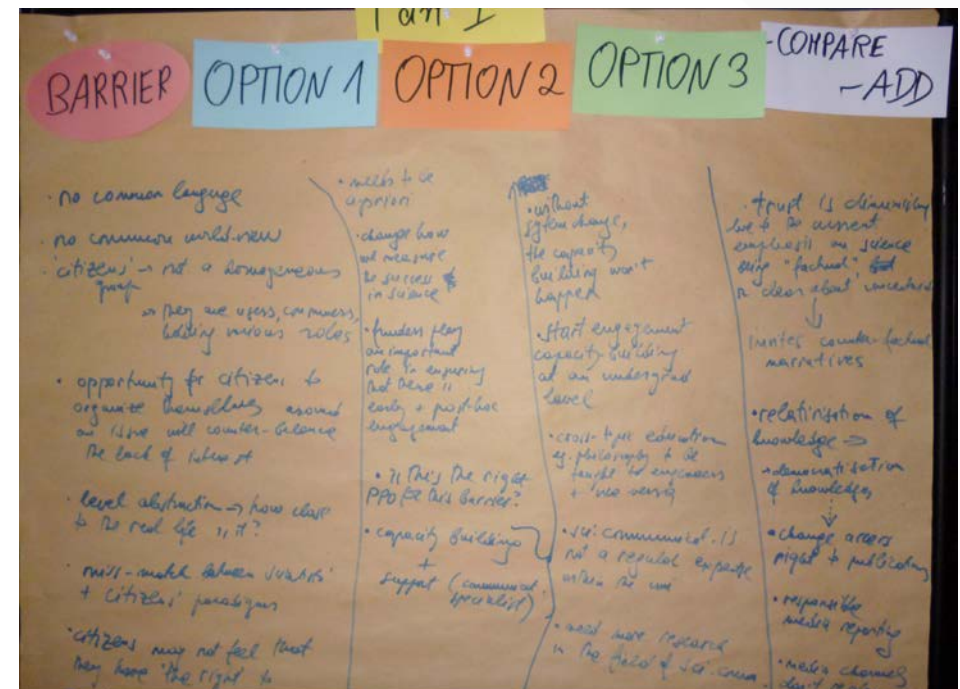 BARRIER
OPTION 1
OPTION 2
OPTION 3
- COMPARE
- ADD
· no common language
· no common world-view
· 'citizens' → not a homogeneous
group
→ they are users, consumers,
holding various roles
· opportunity for citizens to
organize themselves around
an issue will counter-balance
the lack of interest
· level abstraction → how close
to the real life is it?
· miss-match between scientists'
+ citizens' paradigms
· citizens may not feel that
they have the right to
· needs to be
a-priori
· change how
we measure
the success
in science
· funders play
an important
role in ensuring
that there is
early + post-hoc
engagement
· Is this the right
PPO for this barrier?
· capacity building
+
support (communicat.
specialist)
· without
system change,
the capacity
building won't
happen
· start engagement
capacity-building
at an undergrad
level
· cross-type education
eg. philosophy to be
taught to engineers
+ vice versa
· sci. communicat. is
not a regular expertise
within the uni
· need more research
in the field of sci. comm.
· trust is diminishing
due to the current
emphasis on science
being "factual",
clear about
↓
invites counter-factual
narratives
· relativisation of
knowledge ⇒
democratisation
of knowledge
↓
· change access
right to publications
· responsible
media reporting
· media channels
don't